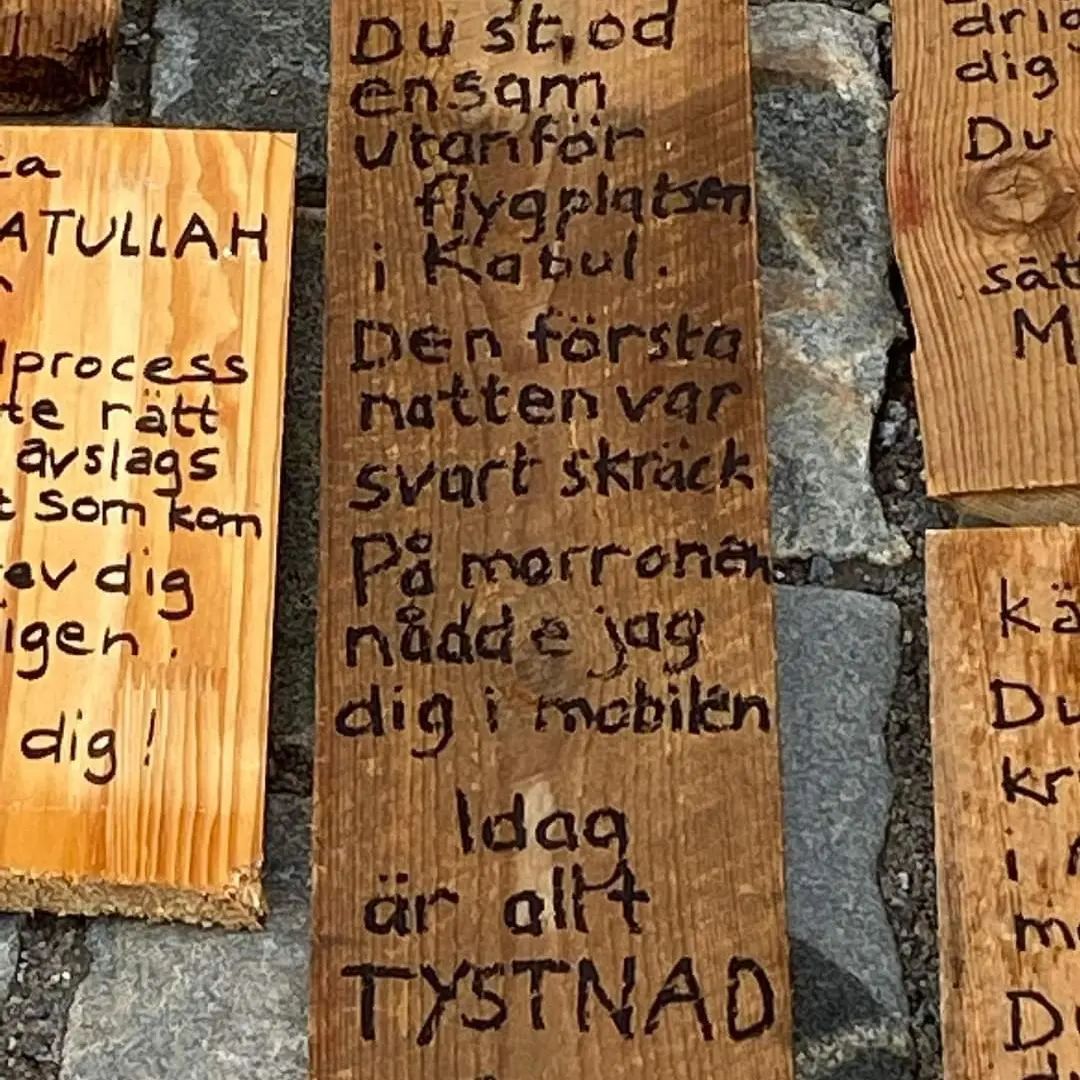 ATULLAH
process
te rätt
avslags
som kom
dig
igen.
dig!
Du stod
ensam
utanför
flygplatsen
i Kabul.
Den första
natten var
svart skräck
På morronen
nådde jag
dig i mobilen
Idag
är allt
TYSTNAD
dig
Du
M
Kä
Du
Kr
i
Du